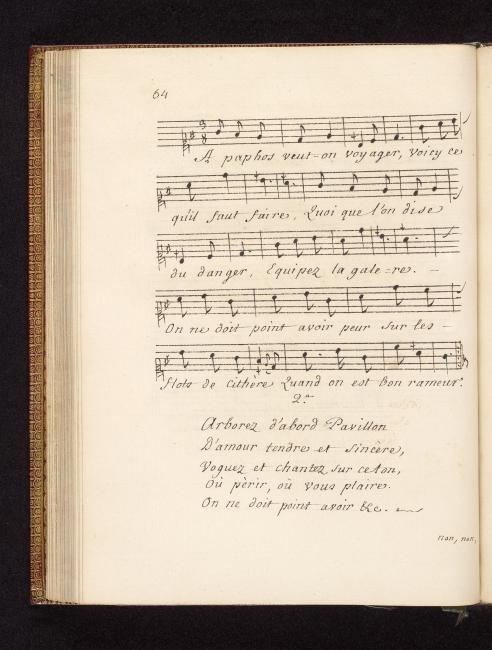 64
A paphos veut-on voyager, voicy ce
qu'il faut faire, Quoi que l'on dise
du danger, Equipez la gale-re. -
On ne doit point avoir peur sur les -
flots de Cithère Quand on est bon rameur.
2.e
Arborez d'abord Pavillon
D'amour tendre et Sincère,
Voguez et chantez sur ce ton,
Où périr, où vous plaire.
On ne doit point avoir &c.
non, non,